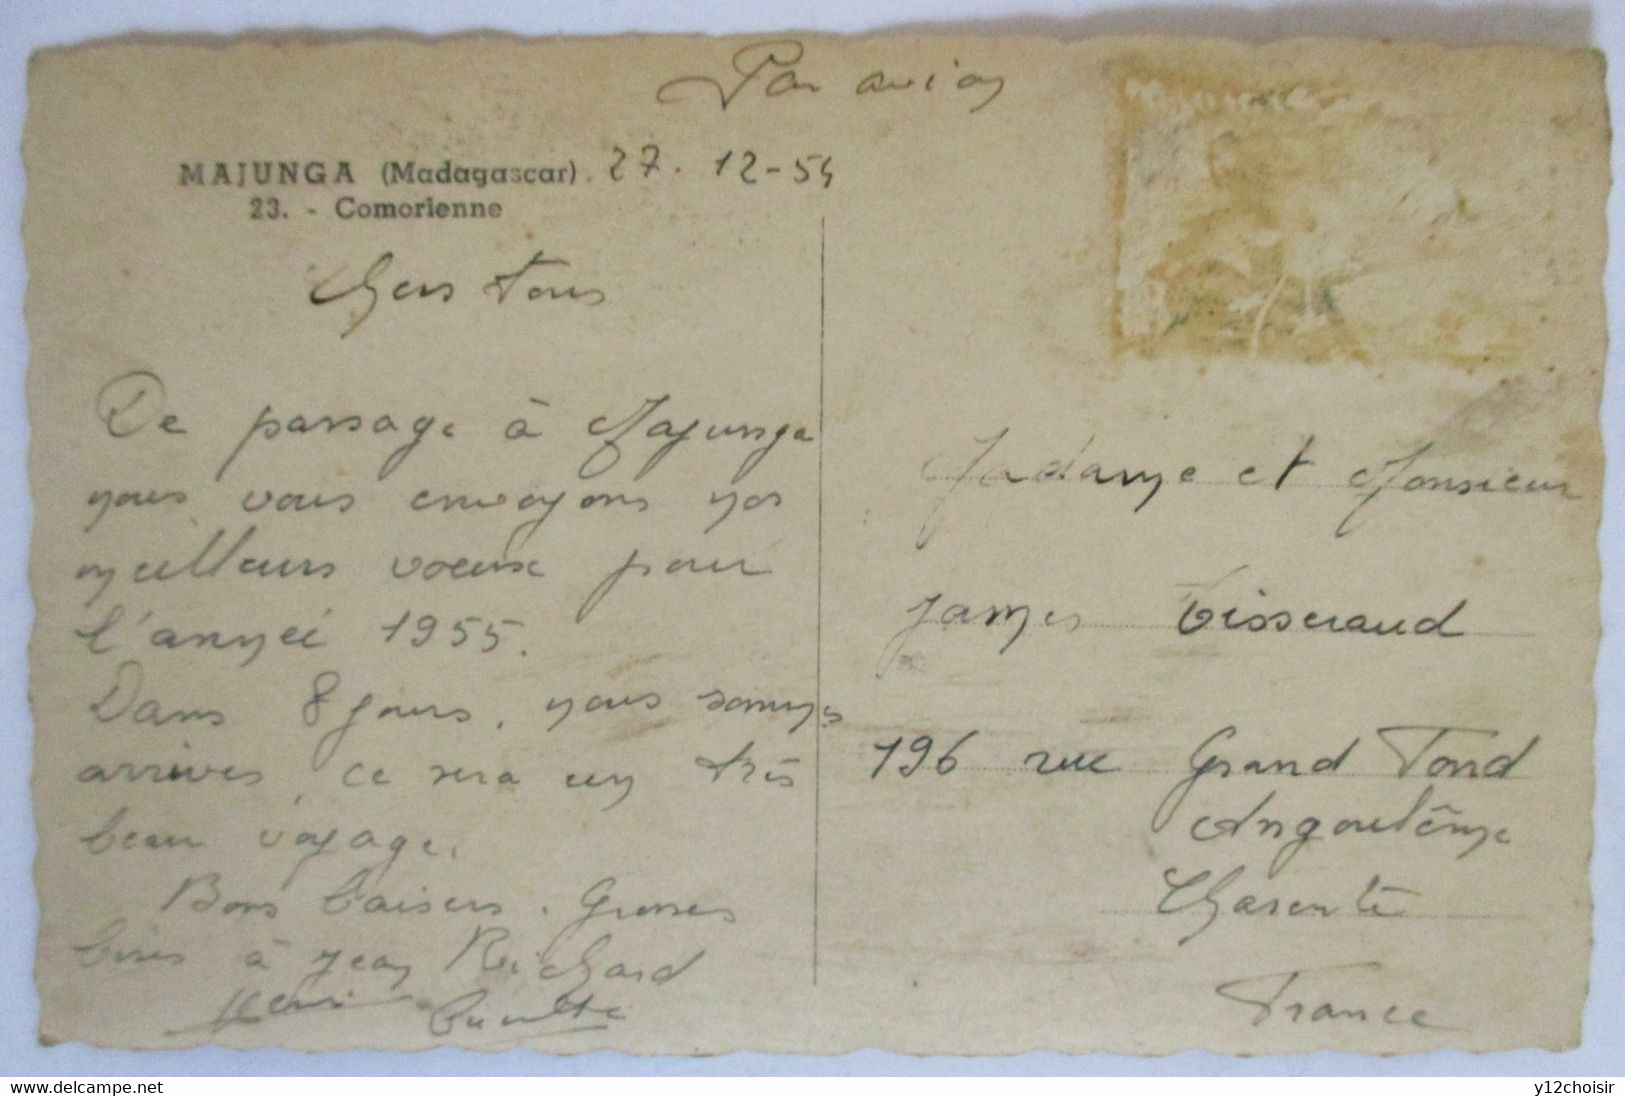 Par avion
MAJUNGA (Madagascar). 27. 12-54
23. - Comorienne
Chers tous
De passage à Majunga
nous vous envoyons nos
meilleurs voeux pour
l'année 1955.
Dans 8 jours, nous sommes
arrivés, ce sera un très
beau voyage.
Bons baisers. Grosses
bises à Jean Richard
Henri
Madame et Monsieur
James Tisseraud
196 rue Grand Fond
Angoulême
Charente
France
delcampe.net
y12choisir